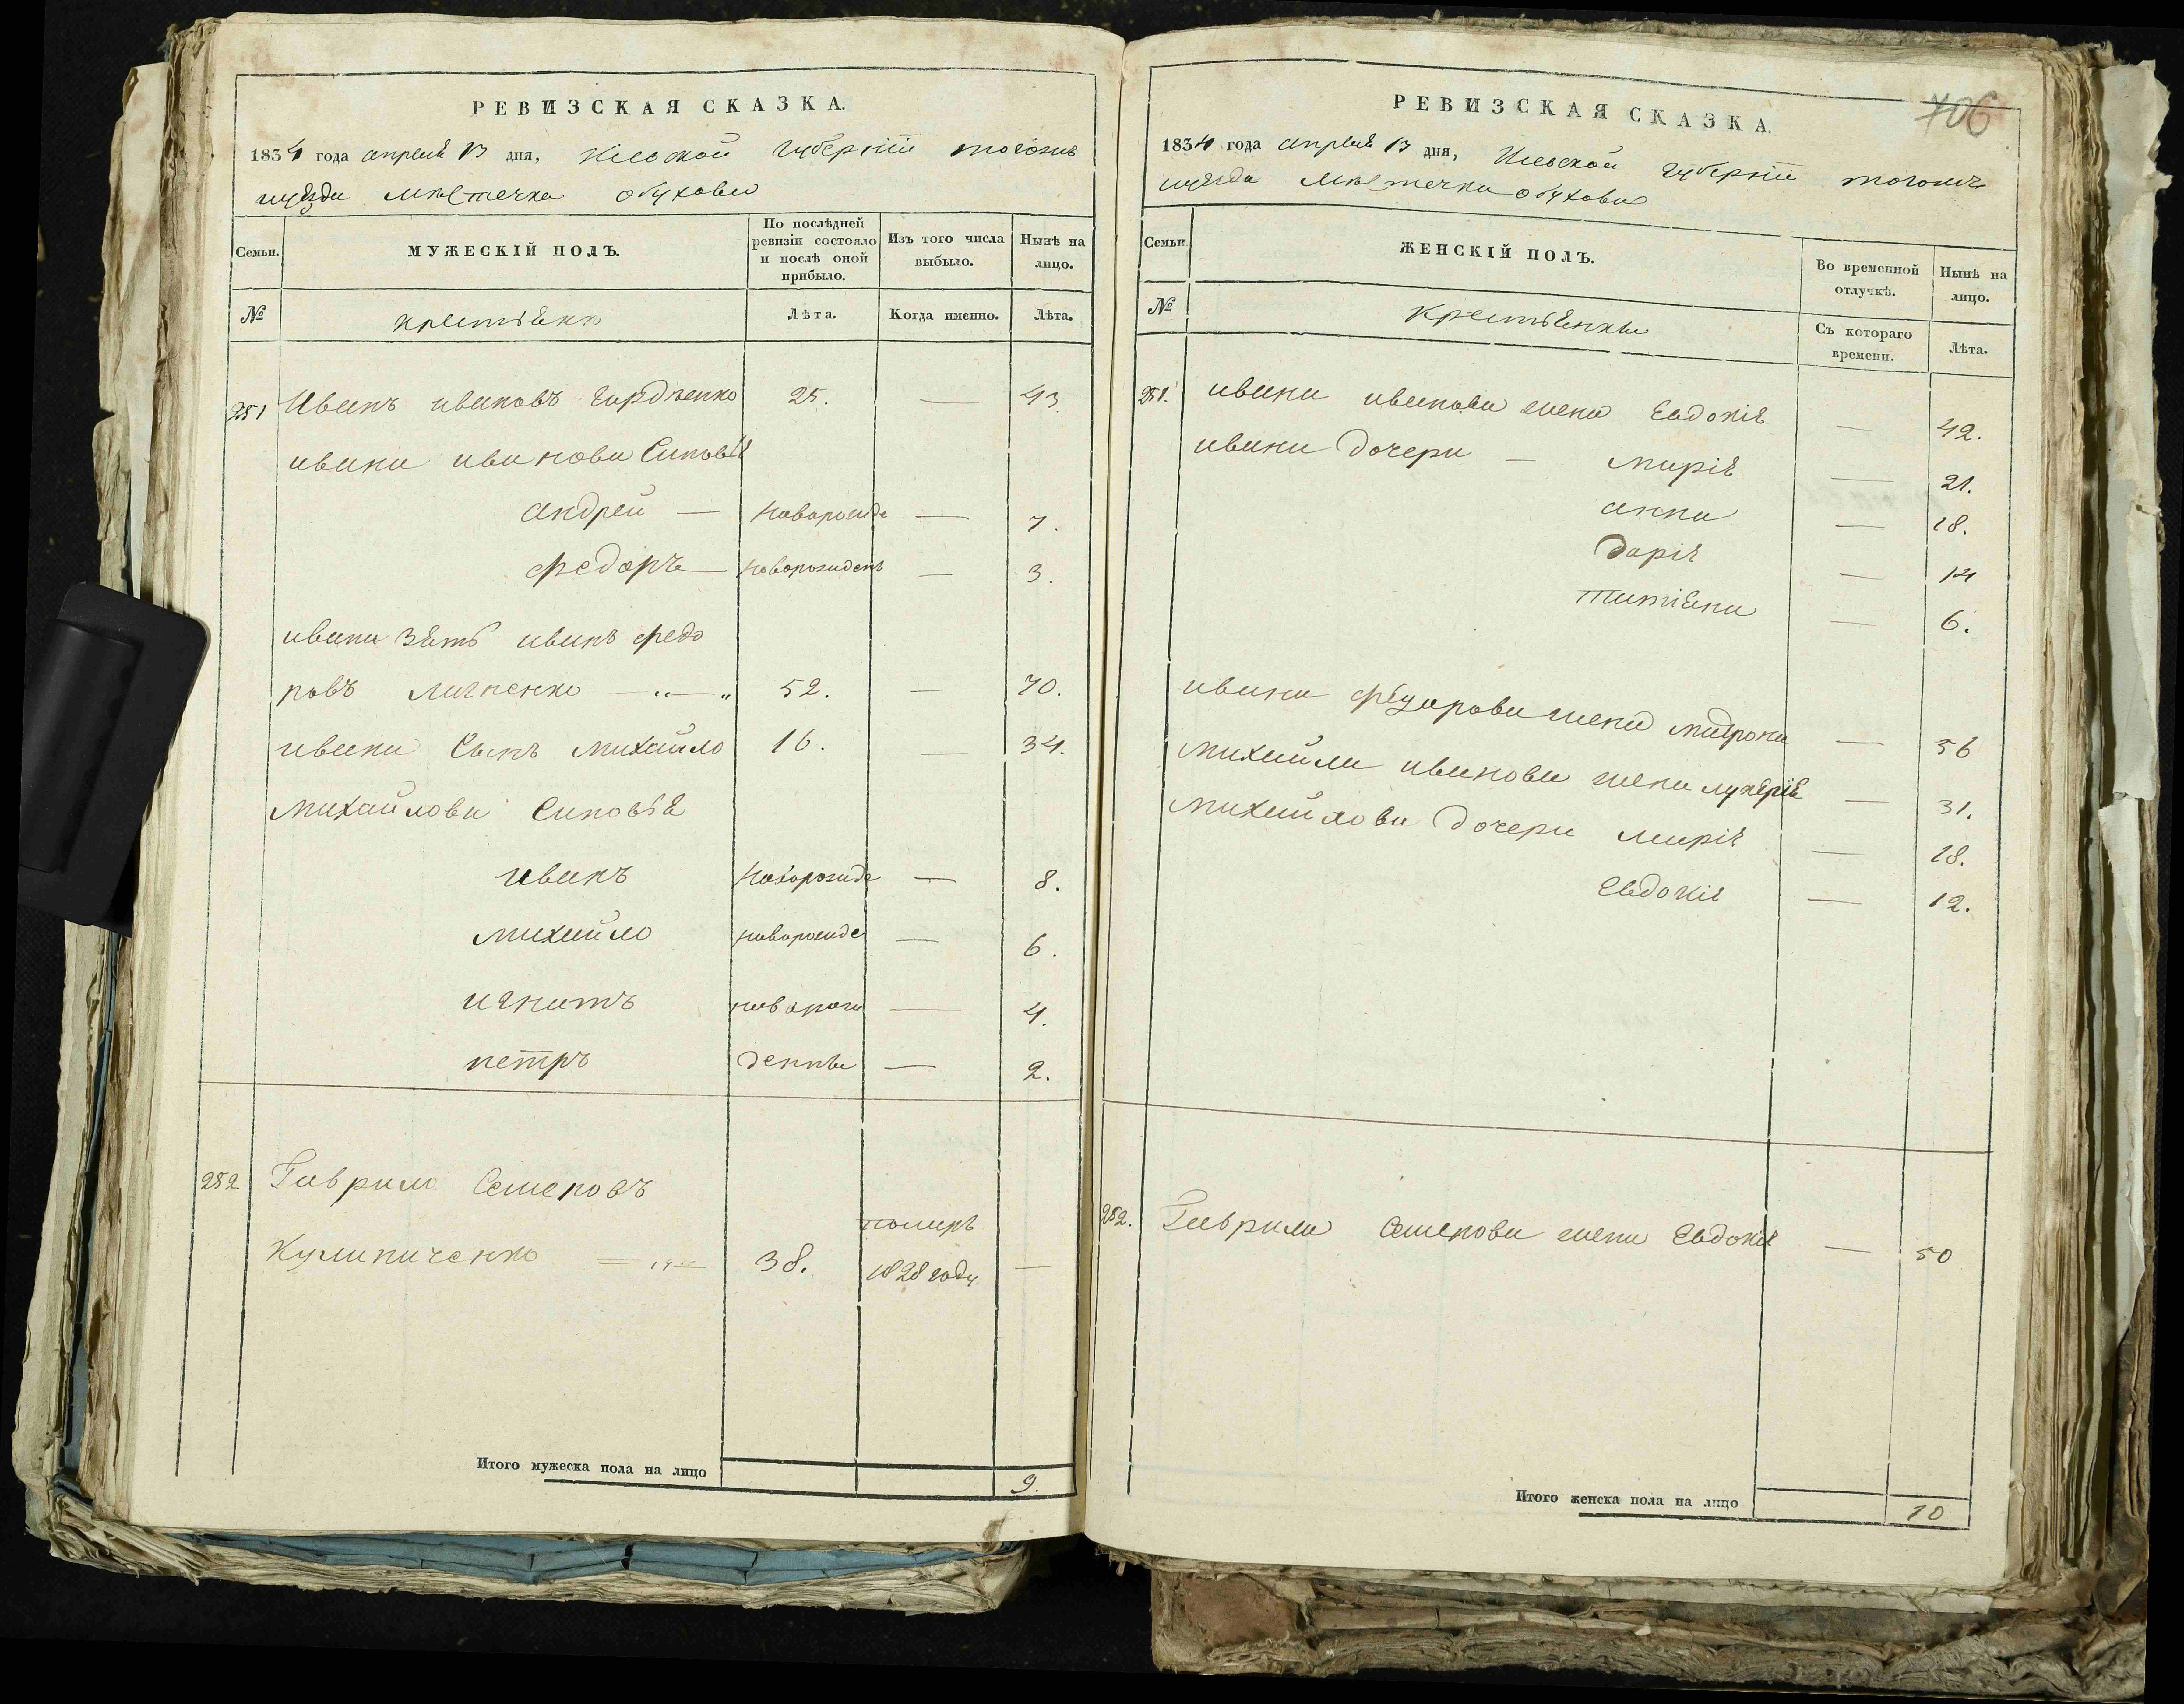 РЕВИЗСКАЯ СКАЗКА.
1834 года апреля 13 дня, Кіевской губерніи тогожъ
уѣзда мѣстечка обухова
Семьи.
МУЖЕСКІЙ ПОЛЪ.
По послѣдней ревизіи состояло и послѣ оной прибыло.
Изъ того числа выбыло.
Нынѣ на лицо.
№
крестьянъ
Лѣта.
Когда именно.
Лѣта.
251 Иванъ ивановъ гордѣенко 25. — 43.
ивана иванова Синовья
андрей — новорожде — 7.
федоръ — новорожденъ — 3.
ивана Зять иванъ федо
ровъ 52. — 70.
ивана Сынъ михайло 16. — 34.
михайлова Синовья
иванъ новорожде — 8.
михайло новорожде — 6.
игнатъ  новорож — 4.
петръ денны — 2.
252 Гаврило Семеновъ
помиръ
Кулиниченко 38. 1828 году —
Итого мужеска пола на лицо 9.
706
РЕВИЗСКАЯ СКАЗКА.
1834 года апреля 13 дня, Кіевской губерніи тогожъ
уѣзда мѣстечка обухова
Семьи.
ЖЕНСКІЙ ПОЛЪ.
Во временной отлучкѣ.
Нынѣ на лицо.
№
крестьянки
Съ котораго времени.
Лѣта.
251. ивана иванова жена Евдокія — 42.
ивана дочери — марія — 21.
анна — 18.
дарія — 14
татіяна — 6.
ивана федорова жена матрона — 56
михайла иванова жена лукерія — 31.
михайлова дочери марія — 18.
Евдокія — 12.
252. Гаврила Семенова жена Евдокія — 50
Итого женска пола на лицо 10